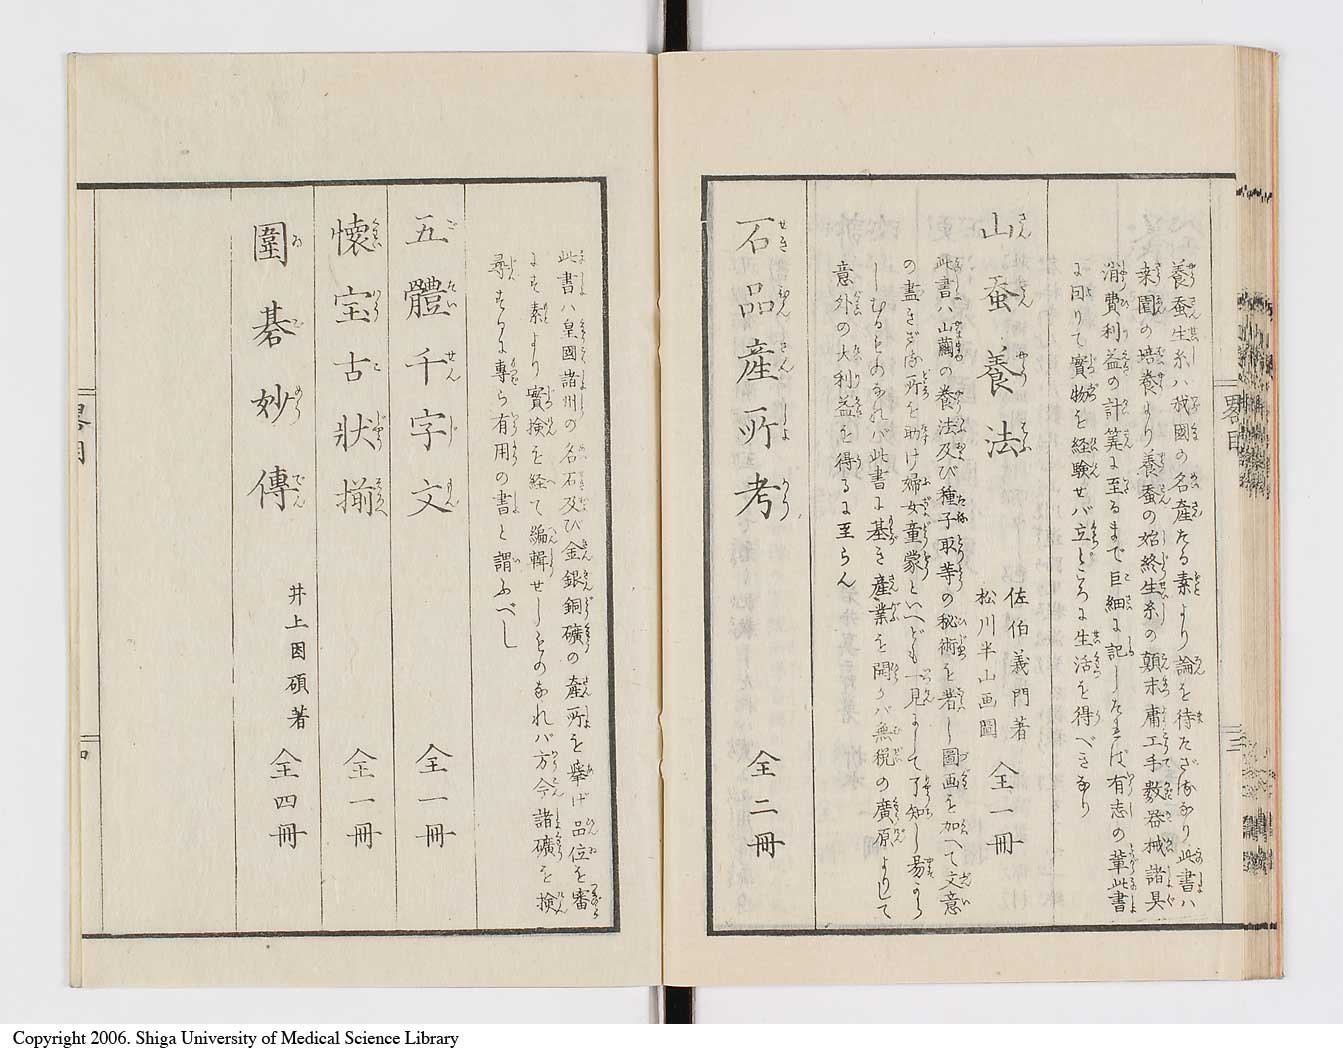 養蚕生糸ハ我國の名産たる素より論を待たざるなり此書ハ
桒園の培養より養蚕の始終生糸の顛末庸工手數器械諸具
消費利益の計筭に至るまで巨細に記したれば有志の輩此書
に因りて實物を経験せバ立ところに生活を得べきなり
山蚕養法 佐伯義門著 松川半山画圖 全一冊
此書ハ山繭の養法及び種子取等の秘術を著し圖画を加へて文意
の盡きざる所を助け婦女童蒙といへども一見して了知し易から
しむるものなれバ此書に基き産業を開かバ無税の廣原よりして
意外の大利益を得るに至らん
石品産所考 全二冊
畧目
三
此書ハ皇國諸州の名石及び金銀銅礦の産所を舉げ品位を審
にす素より實検を経て編輯せしものなれバ方今諸礦を検
尋するに專ら有用の書と謂ふべし
五體千字文 全一冊
懐宝古状揃 全一冊
圍碁妙傳 井上因碩著 全四冊
Copyright 2006. Shiga University of Medical Science Library